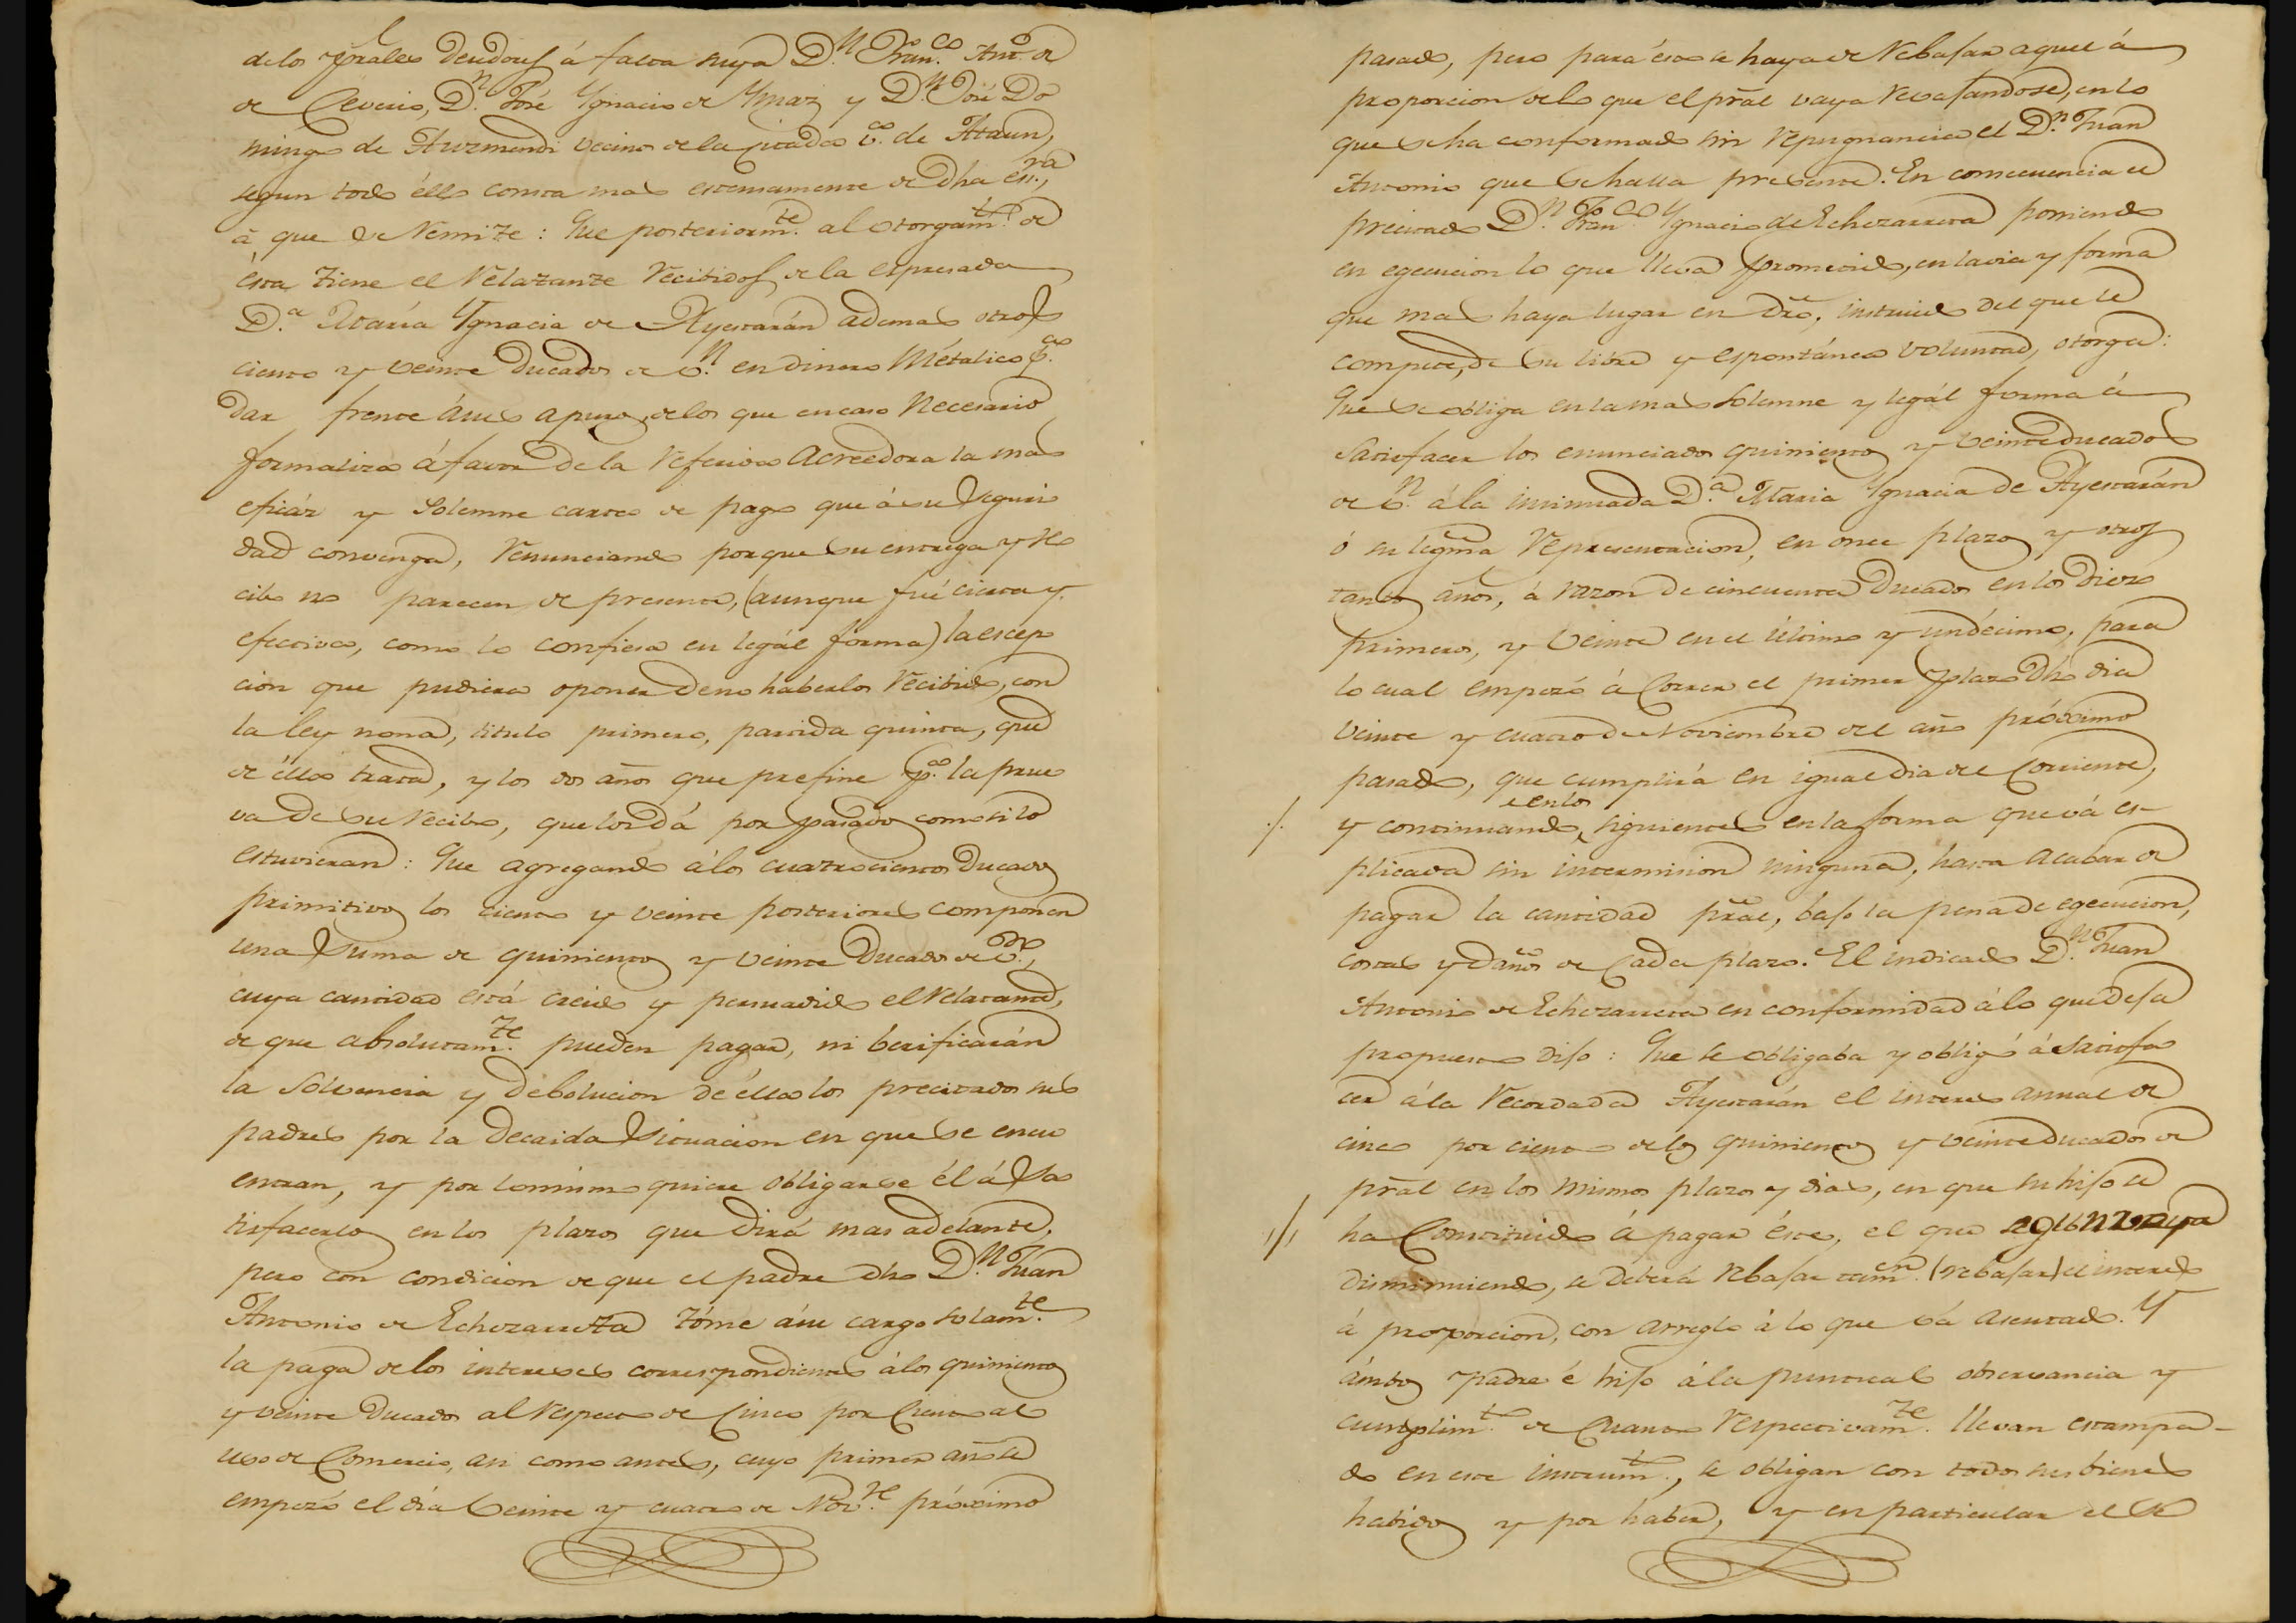 de los prales deudores á falta suya D.n Fran.co Ant.o de
de Ceverio, D.n José Ygnacio de Ymaz y D.n José Do
mingo de Auzmendi vecinos de la citada v.a de Ataun,
segun todo éllo consta mas estensamente de dha es.ra,
á que se remite: Que posteriorm.te al otorgam.to de
ésta tiene el relatante recibidos de la espresada
D.a María Ygnacia de Ayestarán ademas otros
ciento y veinte ducados de v.n en dinero métalico p.a
dar frente á sus apuros, de los que en caso necesario
formaliza á favor de la referida acreedora la mas
eficáz y solemne carta de pago que á su seguri
dad convenga, renunciando porque su entrega y re
cibo no parecen de presente, (aunque fué cierta y
efectiva, como lo confiesa en legál forma) la escep
cion que pudiera oponer de no haberlos recibido, con
la ley nona, titulo primero, partida quinta, que
de élla trata, y los dos años que prefine p.a la prue
va de su recibo, que los dá por pasados como si lo
estuvieran: Que agregando á los cuatrocientos ducados
primitivos los ciento y veinte posteriores componen
una suma de quinientos y veinte ducados de v.n,
cuya cantidad está creido y persuadido el relatante,
de que absolutam.te pueden pagar, ni berificarán
la solvencia y debolucion de élla los precitados sus
padres por la decaida situacion en que se encu
entran, y por lo mismo quiere obligarse él á sa
tisfacerlos en los plazos que dirá mas adelante,
pero con condicion de que el padre dho D.n Juan
Antonio de Echezarreta tóme á su cargo solam.te
la paga de los intereses correspondientes á los quinientos
y veinte ducados al respecto de cinco por ciento al
uso de Comercio, asi como antes, cuyo primer año se
empezó el día veinte y cuatro de Nov.re próximo
pasado, pero para ésto se haya de rebajar aquel á
proporcion de lo que el prál vaya revajandose, en lo
que se ha conformado sin repugnancia el D.n Juan
Antonio que se halla presente. En consecuencia el
precitado D.n Fran.co Ygnacio de Echezarreta poniendo
en egecucion lo que lleva prometido, en la via y forma
que mas haya lugar en dro, instruido del que le
compete, de su libre y espontánea voluntad, otorga:
Que se obliga en la mas solemne y legál forma á
satisfacer los enunciados quinientos y veinte ducados
de v.n á la insinuada D.a Maria Ygnacia de Ayestarán
ó su legma representacion, en once plazos y otros
tantos años, á razon de cincuenta ducados en los diez
primeros, y veinte en el último y undécimo, para
lo cual empezó á correr el primer plazo dho dia
veinte y cuatro de Noviembre del año próximo
pasado, que cumplirá en igual dia del corriente,
./. y continuando en los siguientes en la forma que vá es-
plicada sin intermision ninguna, hasta acabar de
pagar la cantidad prál, bajo la pena de egecucion,
costas y daños de cada plazo. El indicado D.n Juan
Antonio de Echezarreta en conformidad á lo que deja
propuesto dijo: Que se obligaba y obligó á satisfa
cer á la recordada Ayestarán el interes annual de
cinco por ciento de los quinientos y veinte ducados de
prál en los mismos plazos y dias, en que su hijo se
./. ha constituido á pagar éste, el que segun vaya
disminuiendo, se deberá rebajar tam.en (rebajar) el interes
á proporcion, con arreglo á lo que vá asentado. Y
ámbos padre é hijo á la puntual observancia y
cumplim.to de cuanto respectivam.te llevan estampa-
do en este instrum.to, se obligan con todos sus bienes
habidos y por haber, y en particular el re